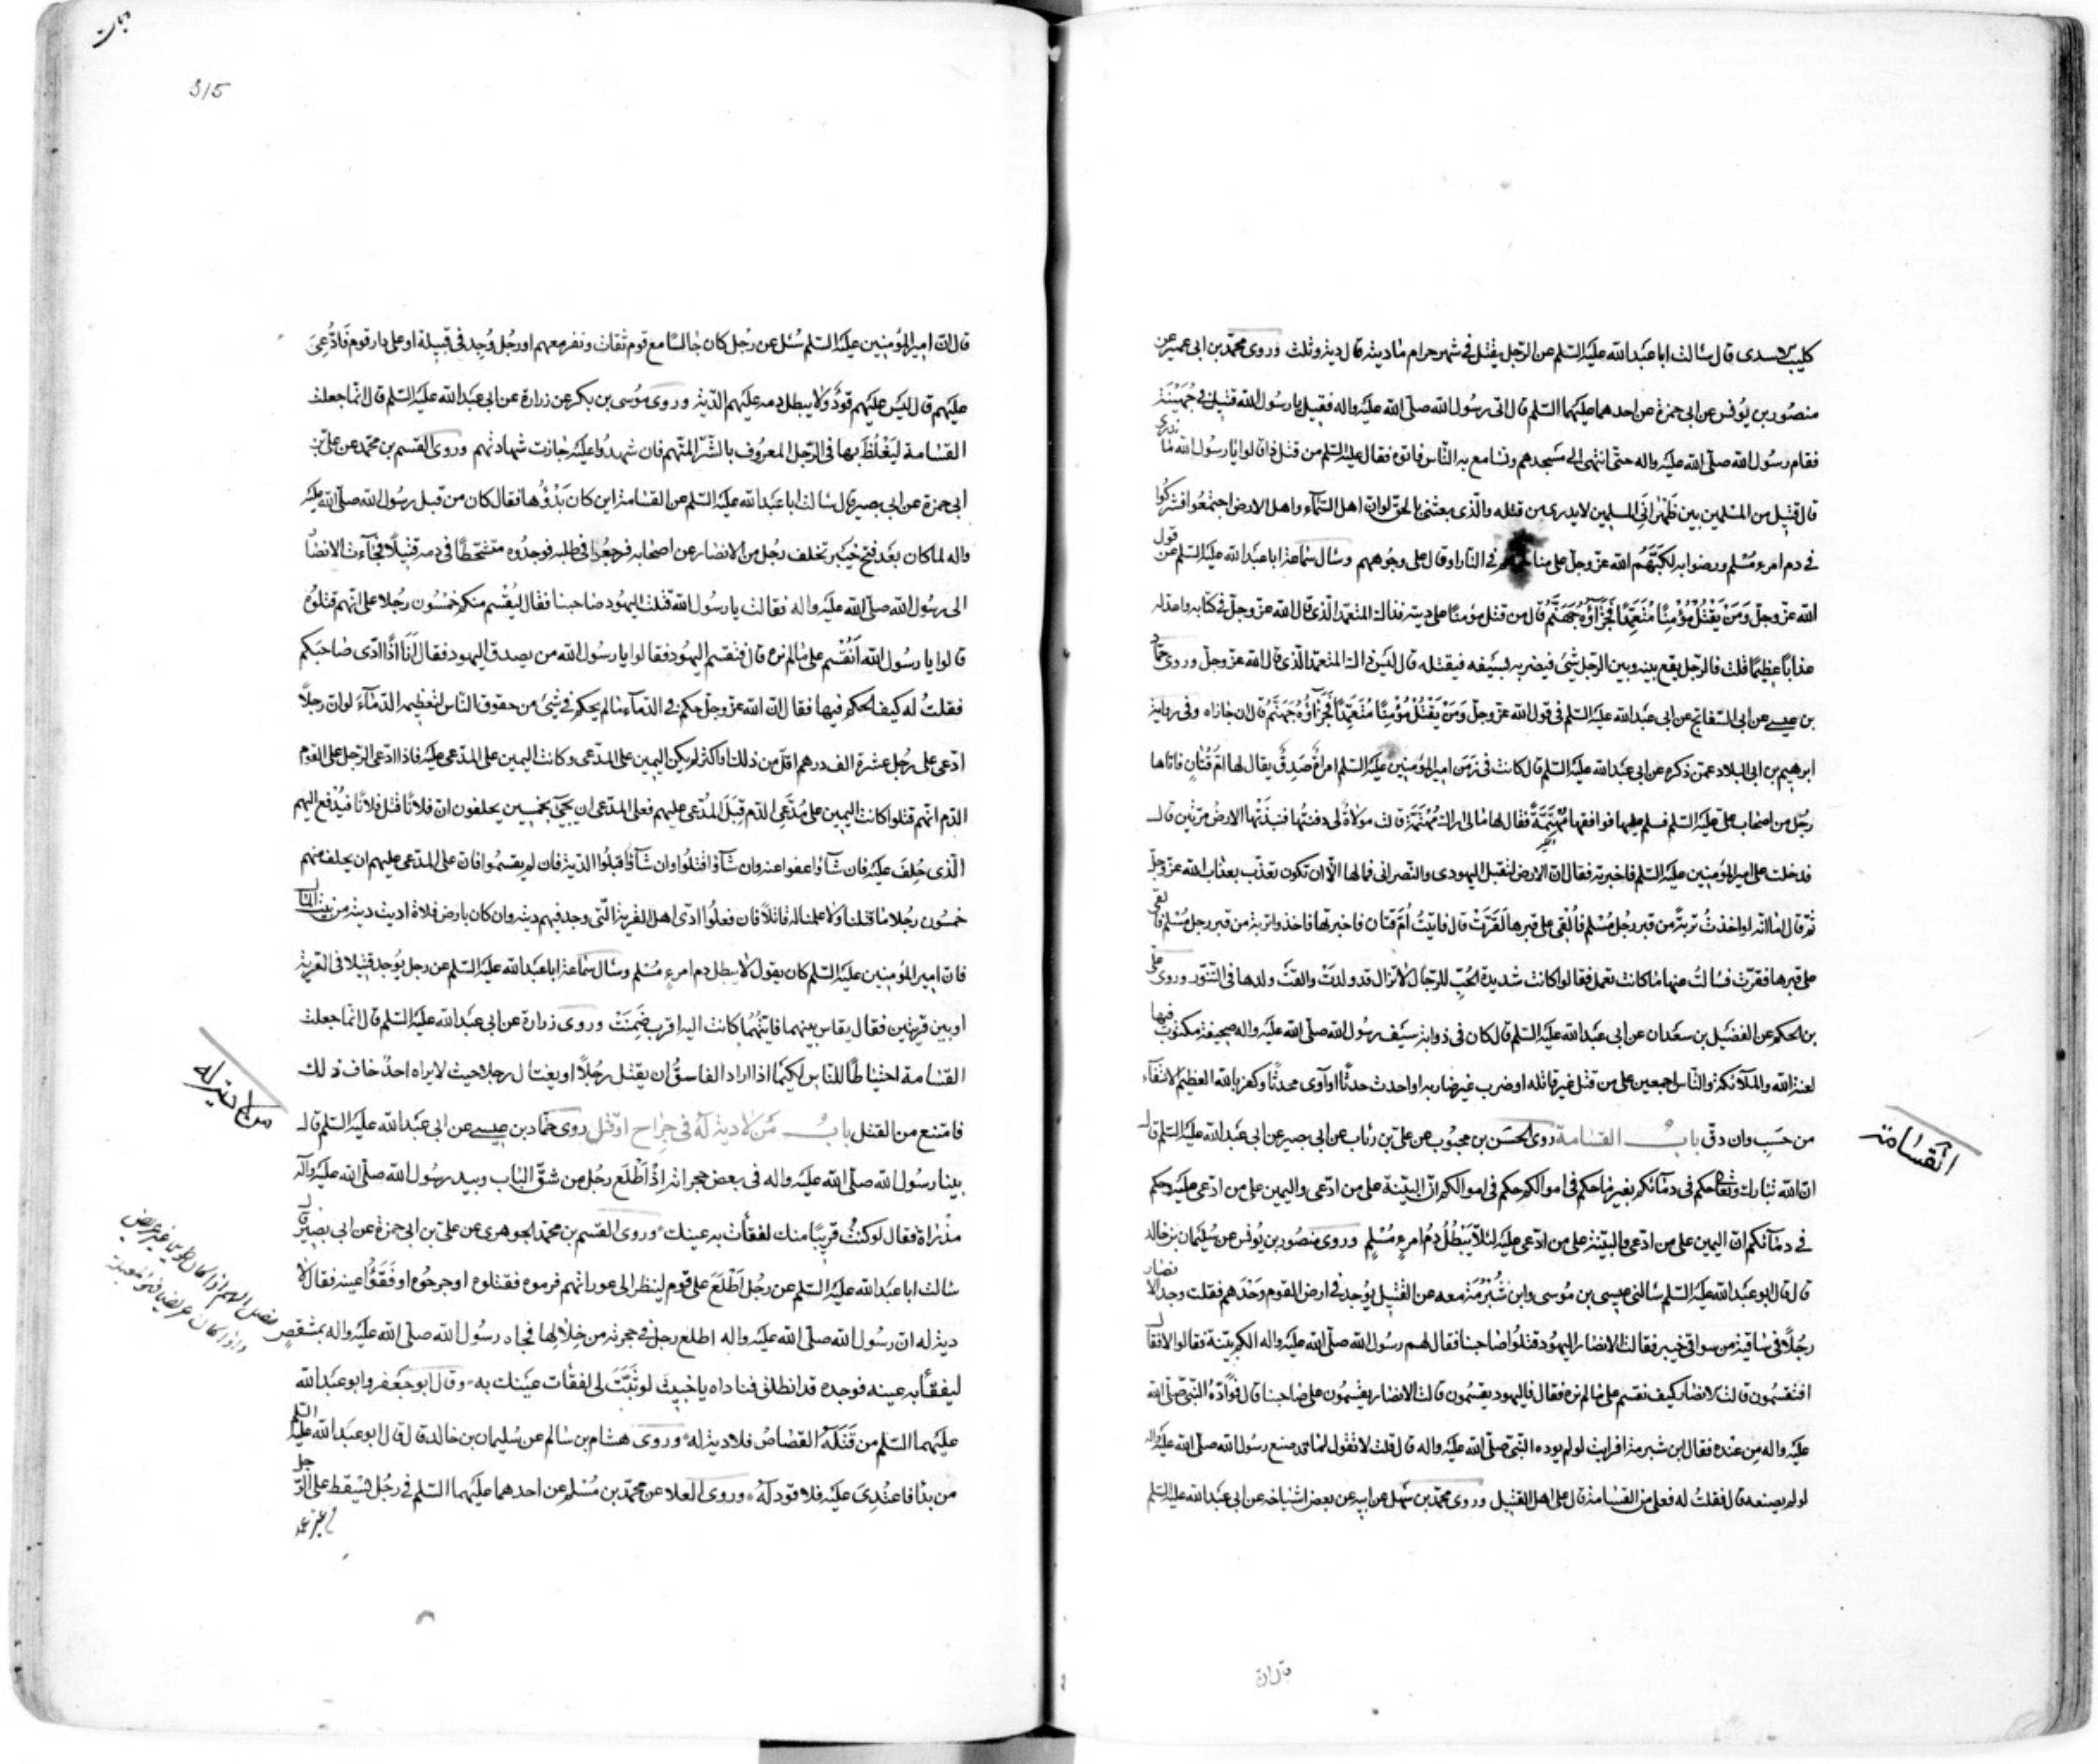 كليب الاسدى قال سألت ابا عبد الله عليه السلم عن الرجل يقتل فى شهر حرام ما ديته قال دية وثلث وروى محمد بن ابى عمير عن
منصور بن يونس عن ابى حمزة عن احدهما عليهما السلم قال اتى رسول الله صلى الله عليه واله فقيل يا رسول الله قتيل فى جهينة
فقام رسول الله صلى الله عليه واله حتى انتهى الى مسجدهم وتسامع به الناس فاتوه فقال عليه السلم من قتل ذا قالوا يا رسول الله ما ندرى
قال قتيل من المسلمين بين ظهرانى المسلمين لا يدرى من قتله والذى بعثنى بالحق لو ان اهل السماء واهل الارض اجتمعوا فشركوا
فى دم امرء مسلم ورضوا به لكبهم الله عز وجل على مناخرهم فى النار او قال على وجوههم وسأل سماعة ابا عبد الله عليه السلم عن قول
الله عز وجل وَمَنْ يَقْتُلْ مُؤْمِنًا مُتَعَمِّدًا فَجَزَآؤُهُ جَهَنَّمُ قال من قتل مؤمنا على دينه فذاك المتعمد الذى قال الله عز وجل فى كتابه واعد له
عذابا عظيما قلت فالرجل يقع بينه وبين الرجل شىء فيضربه بسيفه فيقتله قال ليس ذاك المتعمد الذى قال الله عز وجل وروى حماد
بن عيسى عن ابى السفاتج عن ابى عبد الله عليه السلم فى قول الله عز وجل وَمَنْ يَقْتُلْ مُؤْمِنًا مُتَعَمِّدًا فَجَزَآؤُهُ جَهَنَّمُ قال ان جازاه وفى رواية
ابرهيم بن ابى البلاد عمن ذكره عن ابى عبد الله عليه السلم قال كانت فى زمن امير المؤمنين عليه السلم امرأة صدق يقال لها ام قتان فاتاها
رجل من اصحاب على عليه السلم فسلم عليها فوافقها مهتمة فقال لها مالى اراك مهتمة قالت مولاة لى دفنتها فنبذتها الارض مرتين قال
فدخلت على امير المؤمنين عليه السلم فاخبرته فقال ان الارض لتقبل اليهودى والنصرانى فما لها الا ان تكون تعذب بعذاب الله عز وجل
ثم قال اما انه لو اخذت تربة من قبر رجل مسلم فالقى على قبرها لقرت قال فاتيت ام قتان فاخبرتها فاخذوا تربة من قبر رجل مسلم فالقى
على قبرها فقرت فسألت عنها ما كانت تعمل فقالوا كانت شديدة الحب للرجال لا تزال قد ولدت والقت ولدها فى التنور وروى على
بن الحكم عن الفضيل بن سعدان عن ابى عبد الله عليه السلم قال كان فى ذوابة سيف رسول الله صلى الله عليه واله صحيفة مكتوب فيها
لعنة الله والملآئكة والناس اجمعين على من قتل غير قاتله او ضرب غير ضاربه او احدث حدثا او آوى محدثا وكفر بالله العظيم الانتفاء
من حسب وان دق باب القسامة روى الحسن بن محبوب عن على بن رئاب عن ابى بصير عن ابى عبد الله عليه السلم قال
ان الله تبارك وتعالى حكم فى دمآئكم بغير ما حكم فى اموالكم حكم فى اموالكم ان البينة على من ادعى واليمين على من ادعى عليه وحكم
فى دمآئكم ان اليمين على من ادعى والبينة على من ادعى عليه لئلا يبطل دم امرء مسلم وروى منصور بن يونس عن سليمان بن خالد
قال قال ابو عبد الله عليه السلم سألنى عيسى بن موسى وابن شبرمة معه عن القتيل يوجد فى ارض القوم وحدهم فقلت وجد الانصار
رجلا فى ساقية من سواقى خيبر فقالت الانصار اليهود قتلوا صاحبنا فقال لهم رسول الله صلى الله عليه واله الكم بينة فقالوا لا فقال
افتقسمون قالت الانصار كيف نقسم على ما لم نره فقال فاليهود يقسمون قالت الانصار يقسمون على صاحبنا قال فوداه النبى صلى الله
عليه واله من عنده فقال ابن شبرمة افرايت لو لم يوده النبى صلى الله عليه واله قال قلت لا نقول لما قد صنع رسول الله صلى الله عليه واله
لو لم يصنعه قال فقلت له فعلى من القسامة قال على اهل القتيل وروى محمد بن سهل عن ابيه عن بعض اشياخه عن ابى عبد الله عليه السلم
القسامة
315
قال ان امير المؤمنين عليه السلم سئل عن رجل كان جالسا مع قوم ثقات ونفر معهم او رجل وجد فى قبيلة او على دار قوم فادعى
عليهم قال ليس عليهم قود ولا يبطل دمه عليهم الدية وروى موسى بن بكر عن زرارة عن ابى عبد الله عليه السلم قال انما جعلت
القسامة ليغلظ بها فى الرجل المعروف بالشر المتهم فان شهدوا عليه جازت شهادتهم وروى القسم بن محمد عن على بن
ابى حمزة عن ابى بصير قال سالت ابا عبد الله عليه السلم عن القسامة اين كان بدؤها فقال كان من قبل رسول الله صلى الله عليه
واله لما كان بعد فتح خيبر تخلف رجل من الانصار عن اصحابه فرجعوا فى طلبه فوجدوه متشحطا فى دمه قتيلا فجآءت الانصار
الى رسول الله صلى الله عليه واله فقالت يا رسول الله قتلت اليهود صاحبنا فقال ليقسم منكم خمسون رجلا على انهم قتلوه
قالوا يا رسول الله انقسم على ما لم نره قال فيقسم اليهود فقالوا يا رسول الله من يصدق اليهود فقال انا اذا ادى صاحبكم
فقلت له كيف الحكم فيها فقال ان الله عز وجل حكم فى الدمآء ما لم يحكم فى شىء من حقوق الناس لتعظيمه الدمآء لو ان رجلا
ادعى على رجل عشرة الف درهم اقل من ذلك او اكثر لم يكن اليمين على المدعى وكانت اليمين على المدعى عليه فاذا ادعى الرجل على القوم
الدم انهم قتلوا كانت اليمين على مدعى الدم قبل المدعى عليهم فعلى المدعى ان يجىء بخمسين يحلفون ان فلانا قتل فلانا فيدفع اليهم
الذى حلف عليه فان شآؤا عفوا عنه وان شآؤا قتلوا وان شآؤا قبلوا الدية فان لم يقسموا فان على المدعى عليهم ان يحلف منهم
خمسون رجلا ما قتلنا ولا علمنا له قاتلا فان فعلوا ادى اهل القرية التى وجد فيهم ديته وان كان بارض فلاة اديت ديته من بيت المال
فان امير المؤمنين عليه السلم كان يقول لا يبطل دم امرء مسلم وسأل سماعة ابا عبد الله عليه السلم عن رجل يوجد قتيلا فى القرية
او بين قريتين فقال يقاس بينهما فايتهما كانت اليه اقرب ضمنت وروى زرارة عن ابى عبد الله عليه السلم قال انما جعلت
القسامة احتياطا للناس لكيما اذا اراد الفاسق ان يقتل رجلا او يغتال رجلا حيث لا يراه احد خاف ذلك
فامتنع من القتل باب من لا دية له فى جراح او قتل روى حماد بن عيسى عن ابى عبد الله عليه السلم قال
بينا رسول الله صلى الله عليه واله فى بعض حجراته اذ اطلع رجل من شق الباب وبيد رسول الله صلى الله عليه وآله
مذراة فقال لو كنت قريبا منك لفقأت به عينك وروى القسم بن محمد الجوهرى عن على بن ابى حمزة عن ابى بصير قال
سالت ابا عبد الله عليه السلم عن رجل اطلع على قوم لينظر الى عوراتهم فرموه فقتلوه او جرحوه او فقؤا عينه فقال لا
دية له ان رسول الله صلى الله عليه واله اطلع رجل فى حجرته من خلالها فجاء رسول الله صلى الله عليه واله بمشقص
ليفقأ به عينه فوجده قد انطلق فناداه يا خبيث لو ثبت لى لفقأت عينك به وقال ابو جعفر وابو عبد الله
عليهما السلم من قتله القصاص فلا دية له وروى هشام بن سالم عن سليمان بن خالد قال قال ابو عبد الله عليه السلم
من بدأ فاعتدى عليه فلا قود له وروى العلا عن محمد بن مسلم عن احدهما عليهما السلم فى رجل يسقط على الرجل
من لا دية له